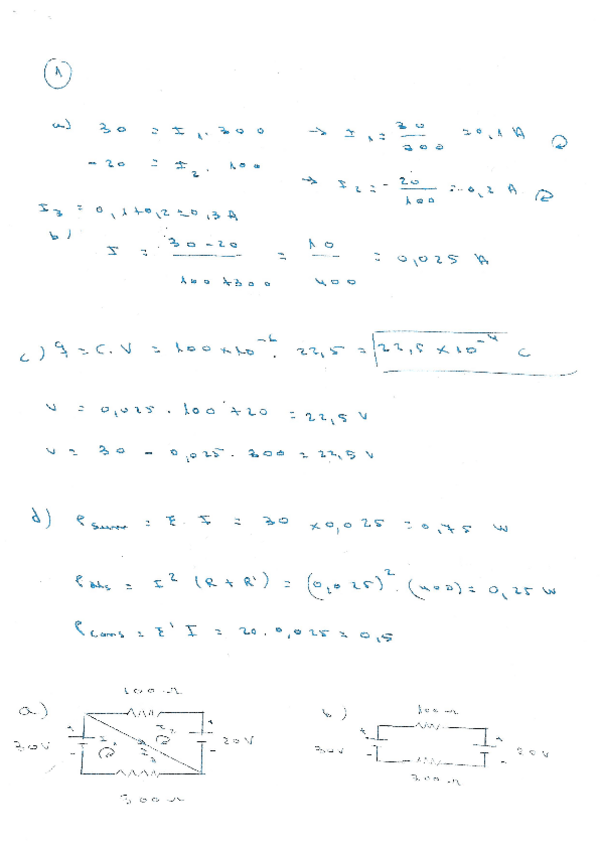 1
a) 30 = I₁. 300 → I₁ = 30/300 = 0,1 A
- 20 = I₂. 100 → I₂ = - 20/100 = -0,2 A
I₃ = 0,1+0,2 = 0,3 A
b) I = 30-20/100+300 = 10/400 = 0,025 A
c) q = C.V = 100 × 10⁻⁶. 22,5 = 22,5 × 10⁻⁴ C
V = 0,025 . 100 + 20 = 22,5 V
V = 30 - 0,025. 300 = 22,5 V
d) P = E. I = 30 × 0,025 = 0,75 W
P = I² (R + R') = (0,025)². (400) = 0,25 W
P cons = E' I = 20. 0,025 = 0,5
100 Ω
a)
30V + - I₁ I₂ I₃ + - 20V
300 Ω
b)
100 Ω
30V + - + - 20V
300 Ω